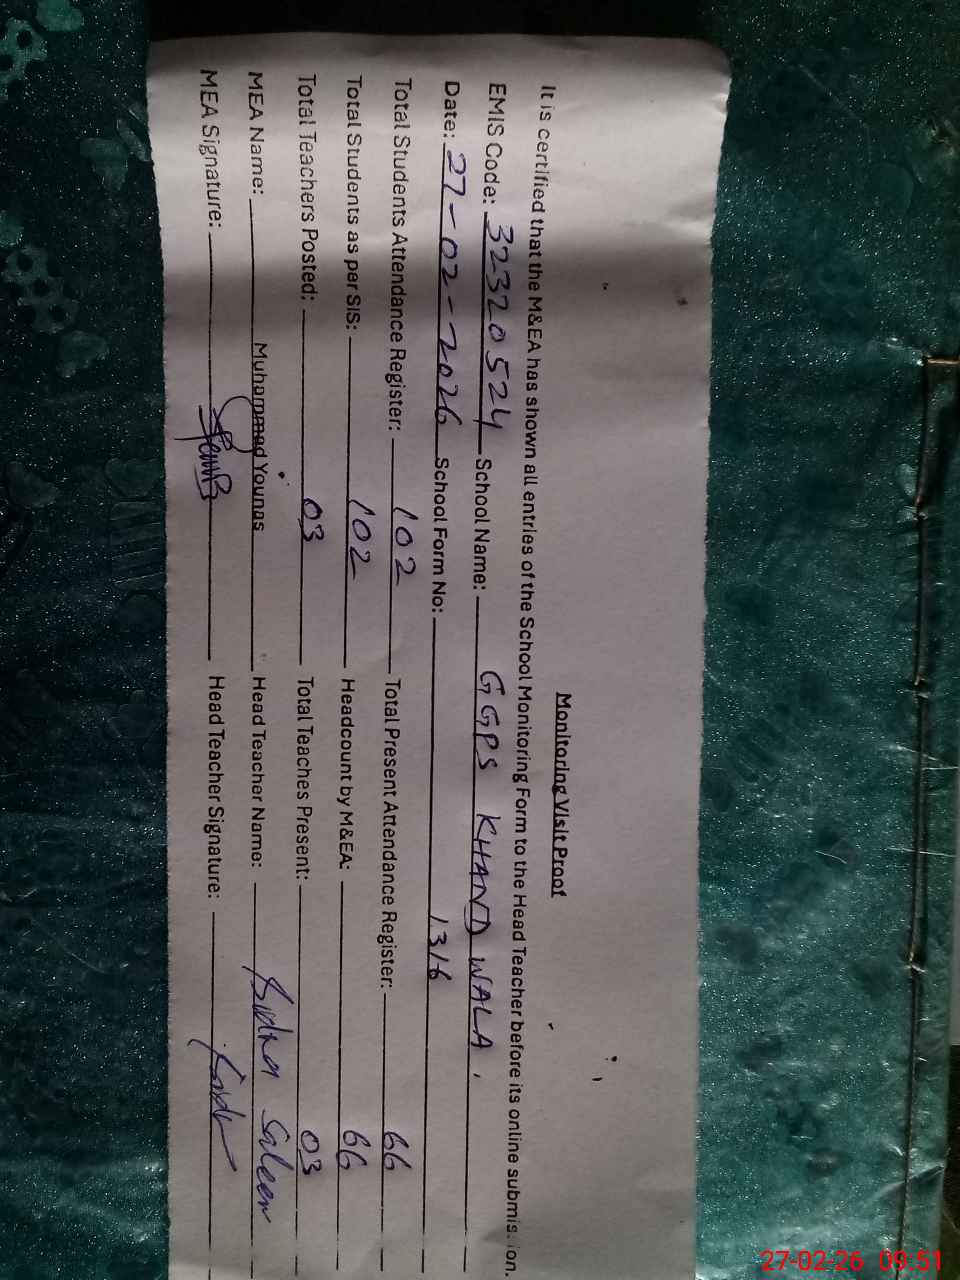 Monitoring Visit Proof
It is certified that the M&EA has shown all entries of the School Monitoring Form to the Head Teacher before its online submission.
EMIS Code: 32320524 School Name: GGPS KHAND WALA.
Date: 27-02-2026 School Form No: 1316
Total Students Attendance Register: 102 Total Present Attendance Register: 66
Total Students as per SIS: 102 Headcount by M&EA: 66
Total Teachers Posted: 03 Total Teaches Present: 03
MEA Name: Muhammad Younas Head Teacher Name: Sidra Saleem
MEA Signature: Head Teacher Signature:
27-02-26 09:51